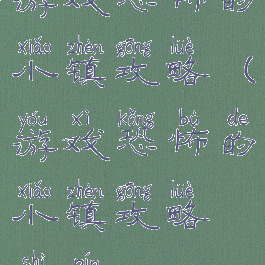 游戏恐怖的
xiǎo zhèn gōng lüè
小镇攻略（
yóu xì kǒng bù de
游戏恐怖的
xiǎo zhèn gōng lüè
小镇攻略
shì pín